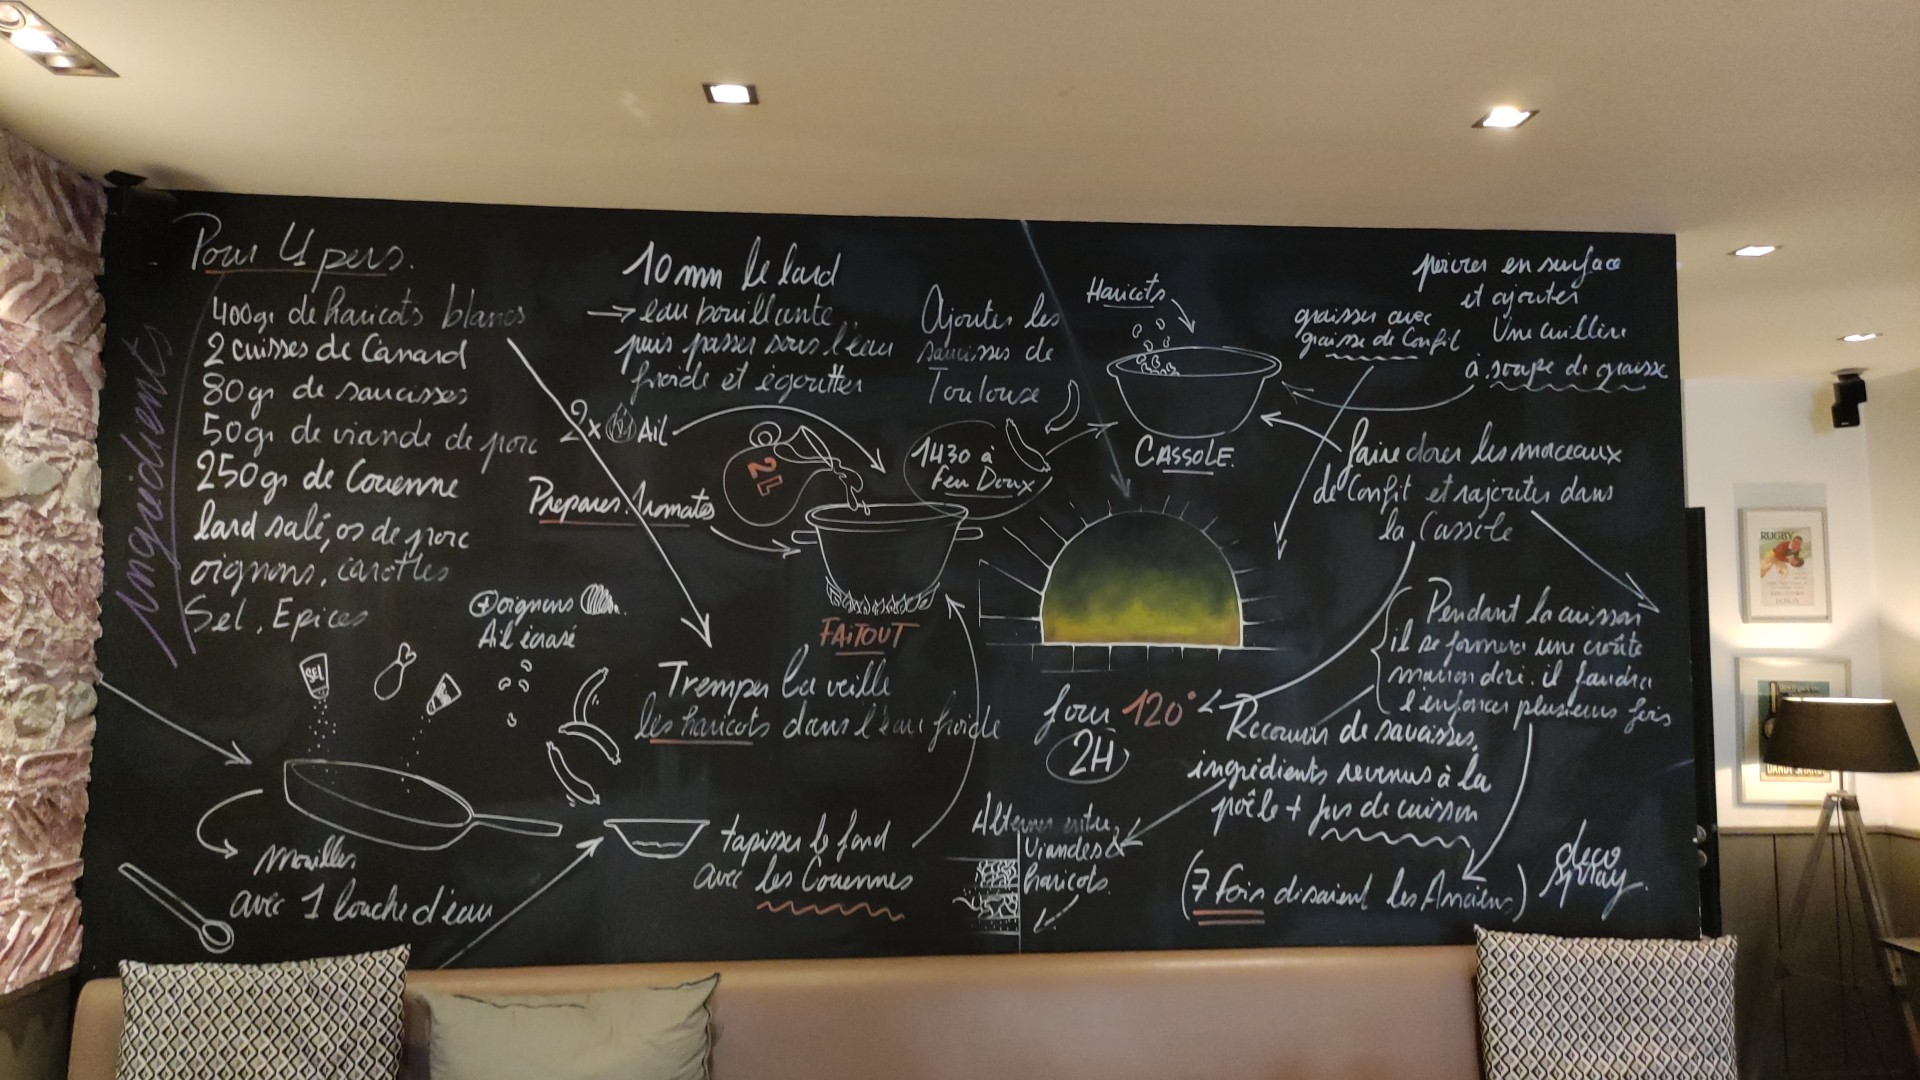 Ingrédients
Pour 4 pers.
400gr de haricots blancs
2 cuisses de Canard
80gr de saucisses
50gr de viande de porc
250gr de Couenne
lard salé, os de porc
oignons, carottes
Sel, Epices
⊕ oignons
Ail écrasé
SEL
mouiller
avec 1 louche d'eau
10 mn le lard
→ eau bouillante
puis passer sous l'eau
froide et égoutter
2x Ail
Préparer. Tomates
2L
FAITOUT
Tremper la veille
les haricots dans l'eau froide
tapisser le fond
avec les Couennes
Ajouter les
saucisses de
Toulouse
1H30 à
feu Doux
Haricots
CASSOLE.
graisser avec
graisse de Confit
poivrer en surface
et ajouter
Une cuillère
à soupe de graisse
faire dorer les morceaux
de Confit et rajouter dans
la Cassole
Pendant la cuisson
il se formera une croûte
marron doré. il faudra
l'enfoncer plusieurs fois
four 120°
2H
Recouvrir de saucisses,
ingrédients revenus à la
poêle + jus de cuisson
Alterner entre
Viandes &
haricots.
(7 fois disaient les Anciens)
deco
spray
RUGBY
DANDY